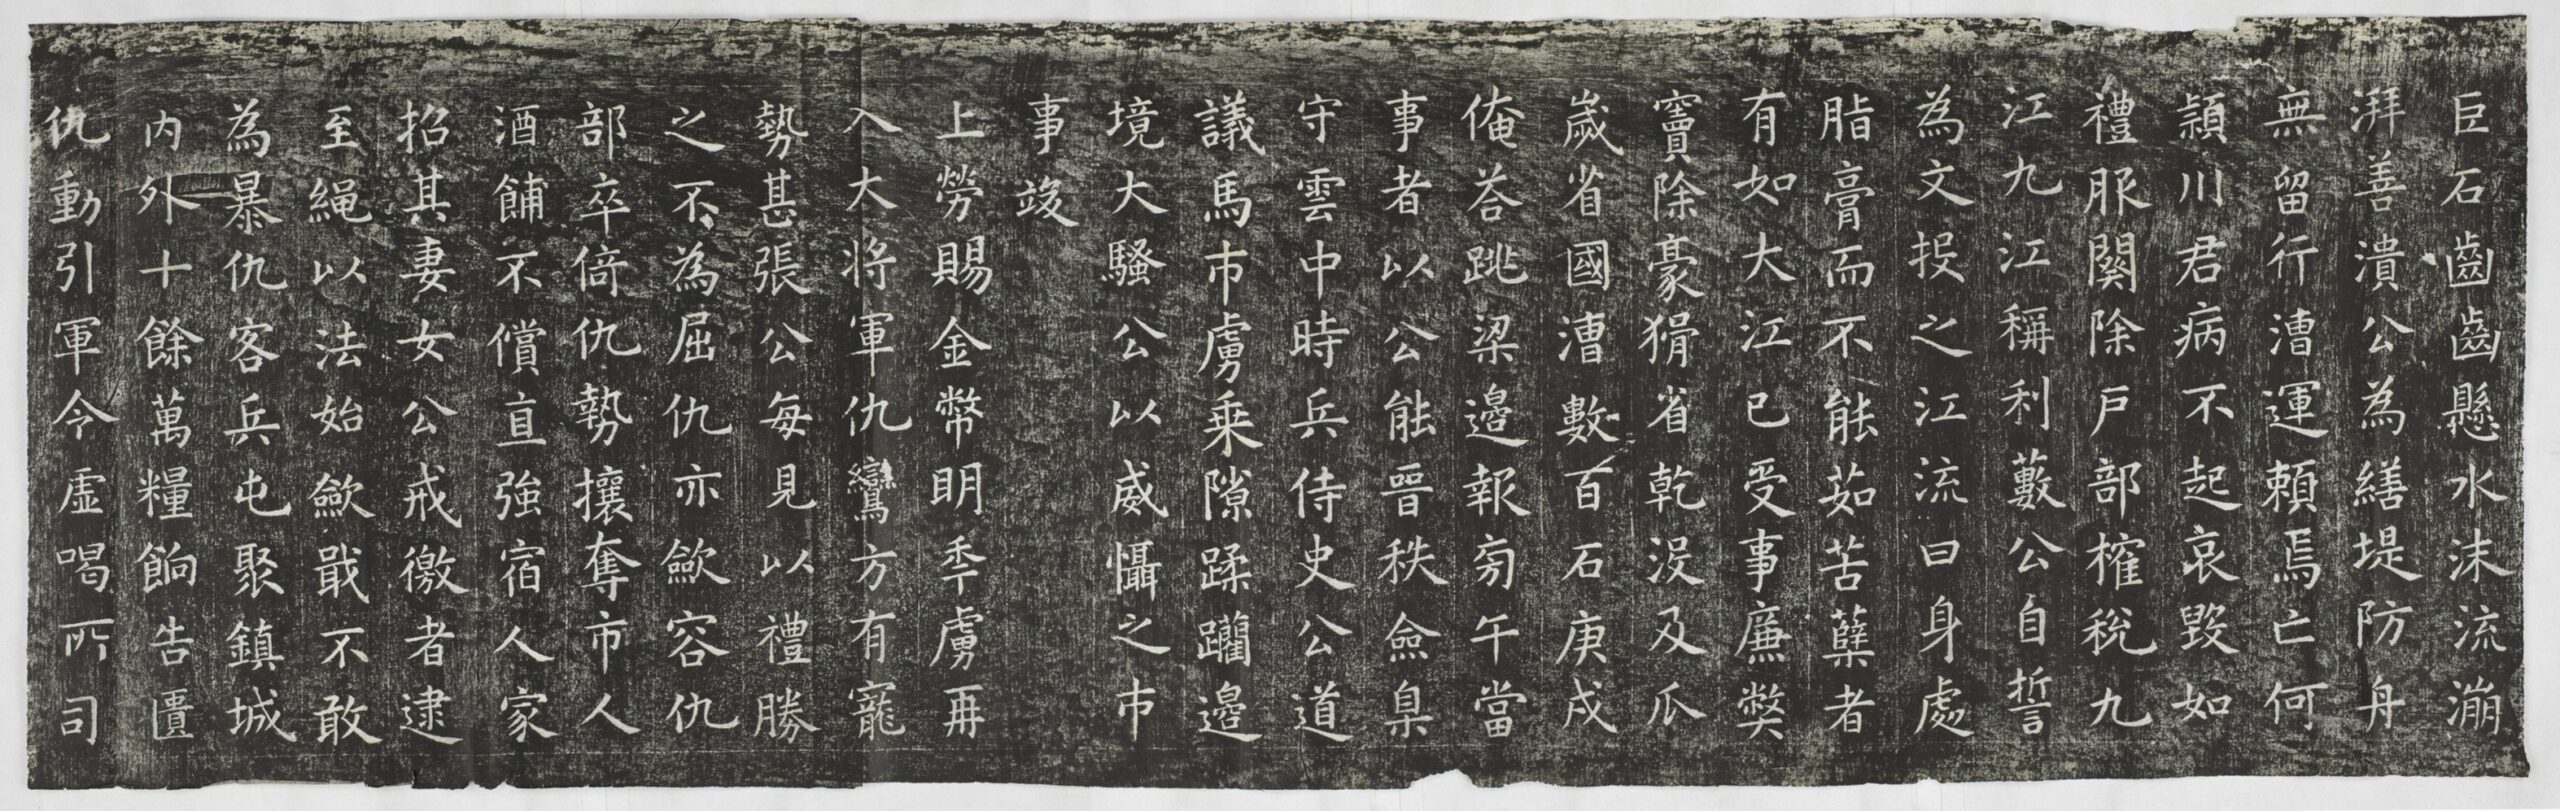 巨石齒齒懸水沫流漰
湃善潰公為繕堤防舟
無留行漕運賴焉亡何
潁川君病不起哀毀如
禮服闋除戶部榷稅九
江九江稱利藪公自誓
為文投之江流曰身處
脂膏而不能茹苦蘗者
有如大江已受事廉弊
竇除豪猾省乾沒及瓜
歲省國漕數百石庚戌
俺荅跳梁邊報旁午當
事者以公能晉秩僉臬
守雲中時兵侍史公道
議馬市虜乘隙蹂躪邊
境大騷公以威懾之市
事竣
上勞賜金幣明秊虜再
入大將軍仇鸞方有寵
勢甚張公每見以禮勝
之不為屈仇亦歛容仇
部卒倚仇勢攘奪市人
酒餔不償直強宿人家
招其妻女公戒徼者逮
至繩以法始歛戢不敢
為暴仇客兵屯聚鎮城
内外十餘萬糧餉告匱
仇動引軍令虛喝所司